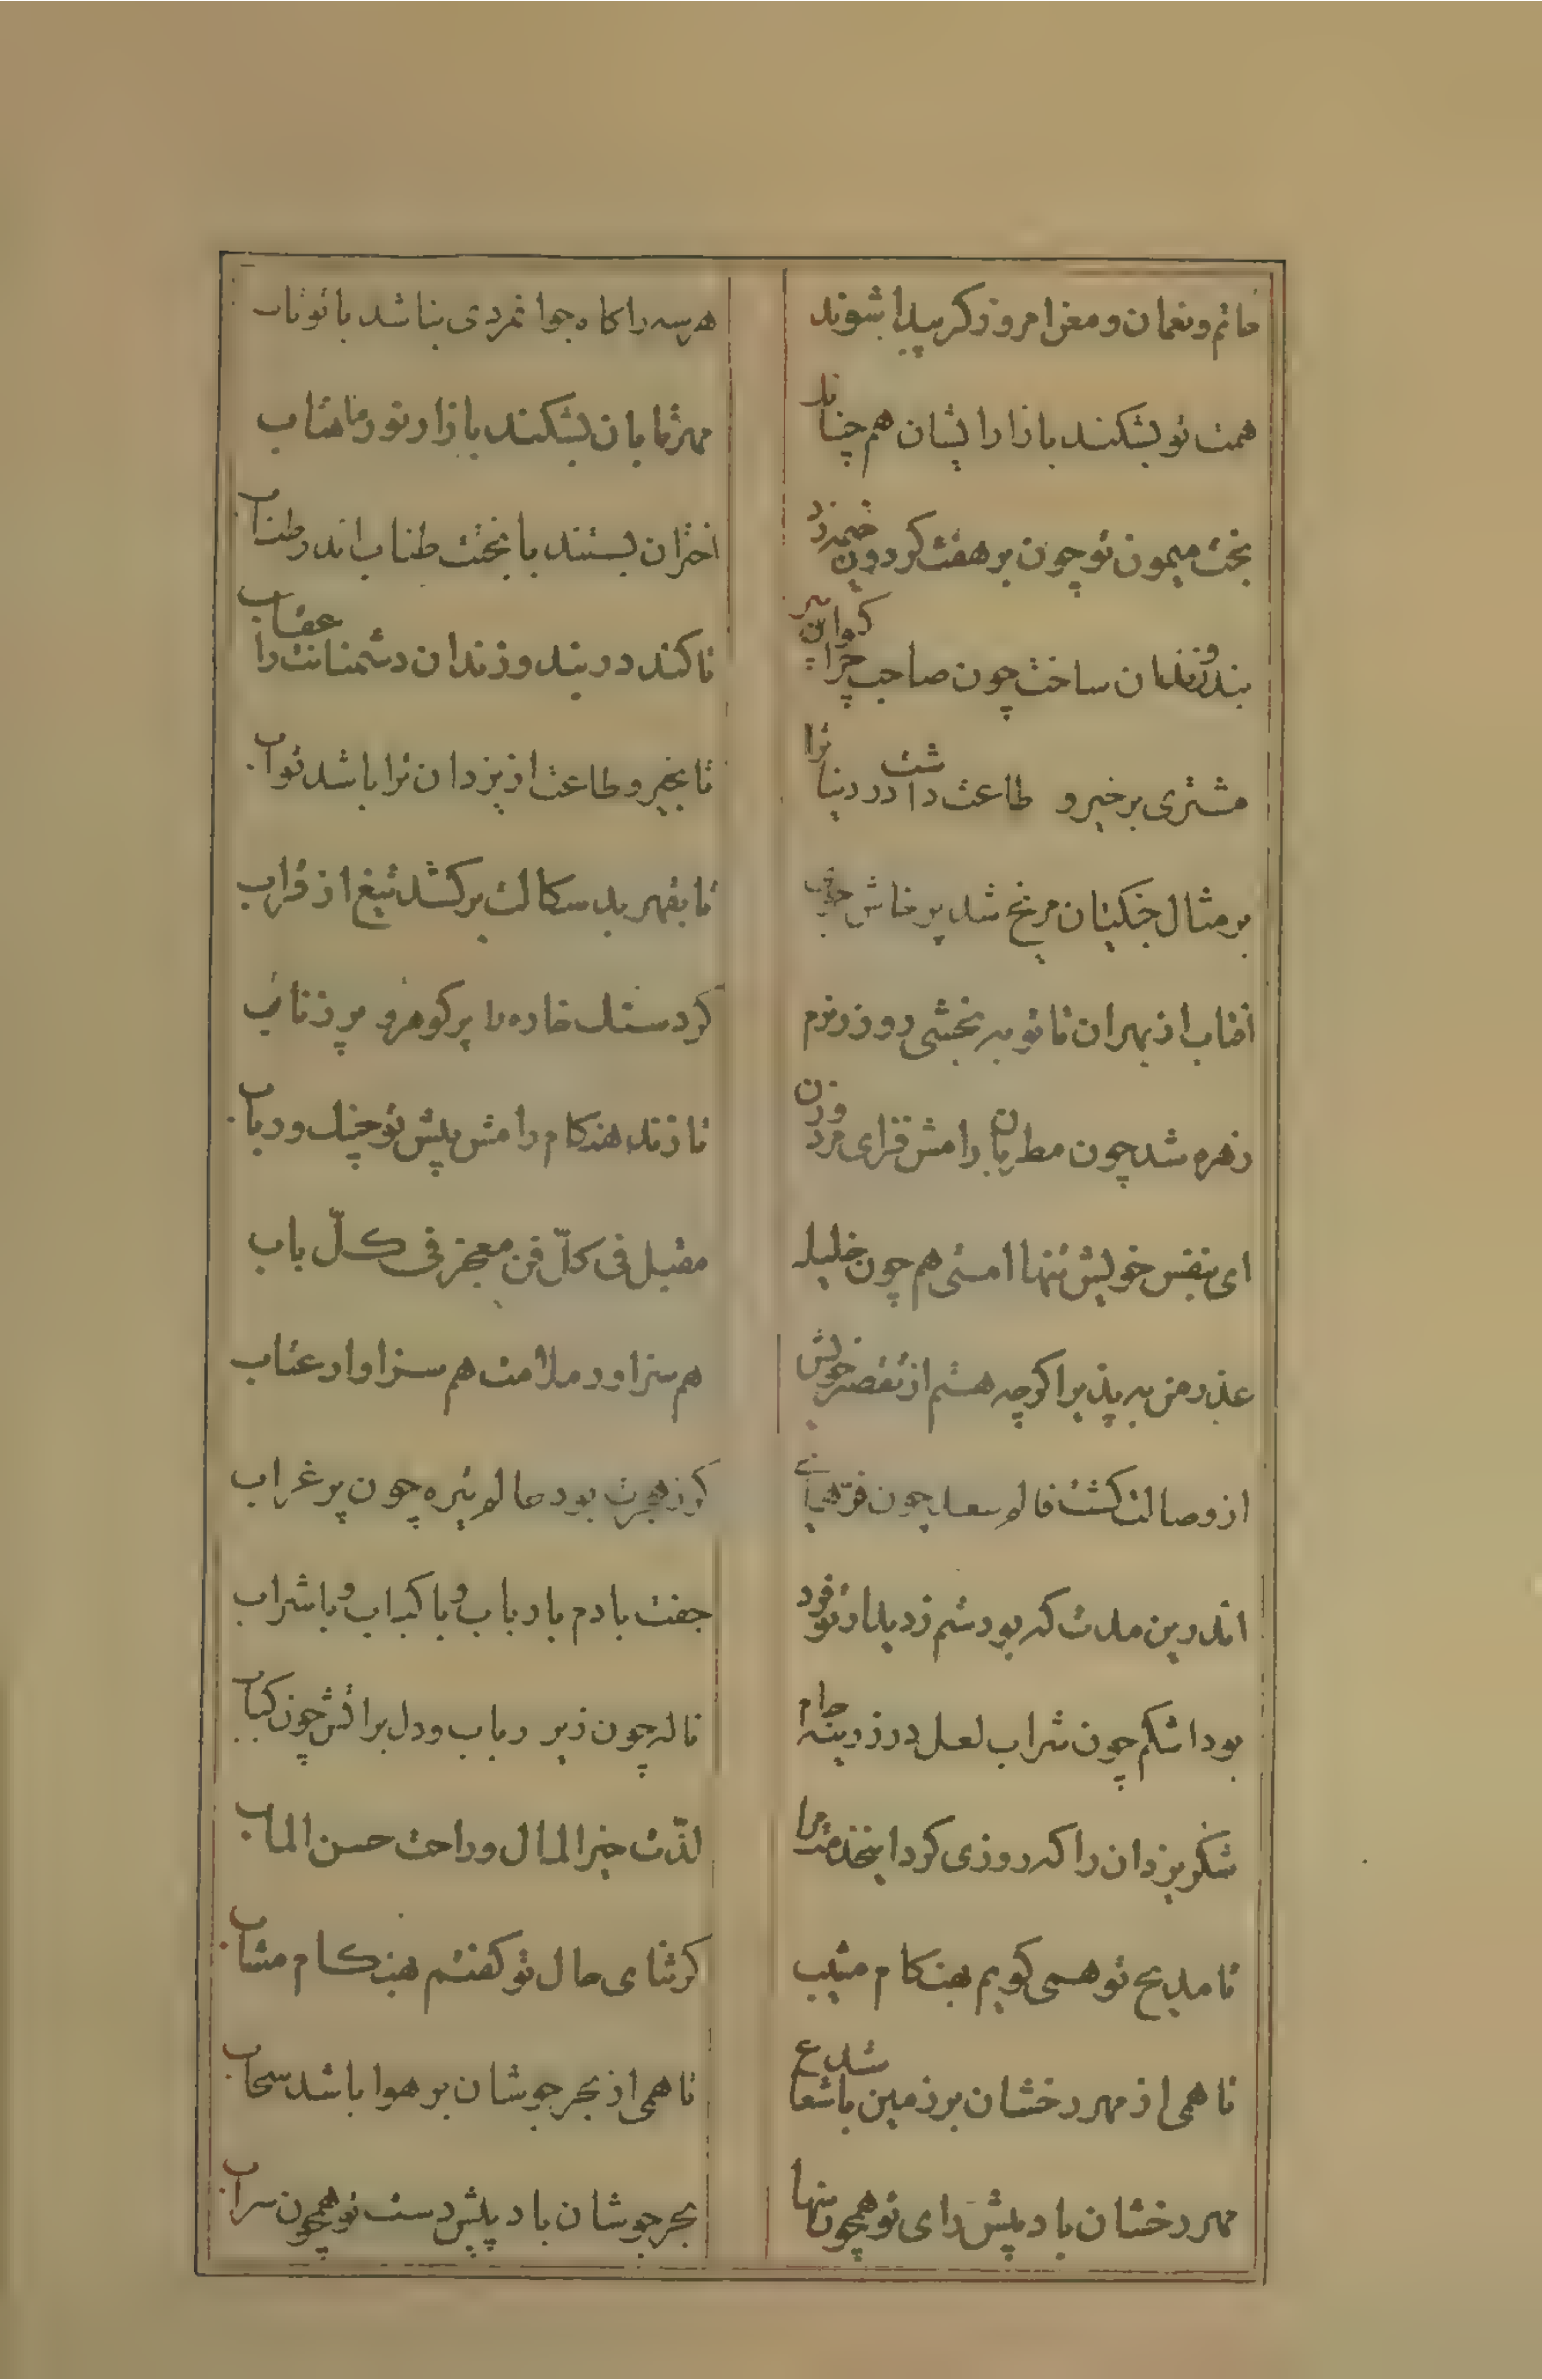 حاتم و نعمان و معن امروز کر پیدا شوند
هر سه را کاه جوانمردی بناشد با تو تاب
همت تو بشکند بازار ایشان هم چنانک
مهر تابان بشکند بازار نور ماهتاب
بخت میمون تو چون بر هفت کردون خیمه زد
اختران بستند با بختت طناب اندر طناب
بند و زندان ساخت چون صاحب جرایم
تا کند در بند و زندان دشمنانت را عقاب
مشتری بر خیر و طاعت داشت در دنیا ترا
تا بخیر و طاعت از یزدان ترا باشد ثواب
بر مثال جنکیان مریخ شد پرخاش جوی
تا بقهر بد سکالت برکشد تیغ از قراب
افتاب از بهر ان تا تو به بخشی روز بزم
کرد سنک خاره را پر کوهر و پر زر ناب
زهره شد چون مطربان رامش فزای مرد و زن
تا زند هنکام رامش پیش تو چنک و رباب
ای بنفس خویش تنها امتی هم چون خلیل
مقبل فی کل فن معجز فی کل باب
عذر من به پذیر اکرچه هستم از تقصیر خویش
هم سزاور ملامت هم سزاوار عتاب
از وصالت کشت فالم سعد چون فر همای
کز هجرت بود حالم تیره چون پر غراب
اندرین مدت که بودستم ز دیدار تو فرد
جفت بادم با رباب و با کباب و با شراب
بود اشکم چون شراب لعل در زرینه جام
ناله چون زیر رباب و دل بر اتش چون کباب
شکر یزدان را که روزی کرد این خدمت مرا
لذّت خیر المال و راحت حسن الماب
تا مدیح تو همی کویم هنکام مشیب
کر ثنای حال تو کفتم هنکام شباب
تا همی از مهر رخشان بر زمین باشد شعاع
تا همی از بحر جوشان بر هوا باشد سحاب
مهر رخشان باد پیش رای تو همچون سها
بحر جوشان باد پیش دست تو همچون سراب